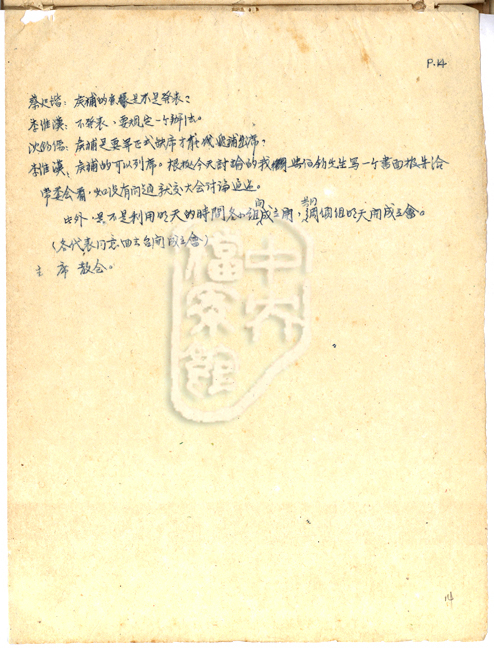 P.14
蔡廷锴：候補的委員是不是發表？
李維漢：不發表，要規定一个辦法。
沈鈞儒：候補是要等正式缺席才能代候補出席。
李維漢：候補的可以列席。根据今天討論的我們與伯鈞先生写一个書面报告给
常委会看，如没有問題就交大会討論通过。
此外，是不是利用明天的時間各小組成立開，調调组明天開成立會。
（各代表同意由公台開成立會）
主席 散会。
中央檔案館
14